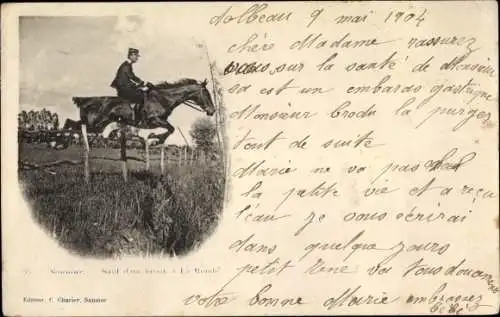 Molbeau 9 mai 1904
chère Madame rassurez
vous sur la santé de
sa est un embaras gastrique
Monsieur Brodu la purger
tout de suite
Marie ne va pas
la petite vie et a reçu
l'eau je vous écrirai
dans quelque jours
petit René va tous doucement
votre bonne Marie embrassez
bébé
Saumur. Saut d'un
Editeur, C. Charier, Saumur